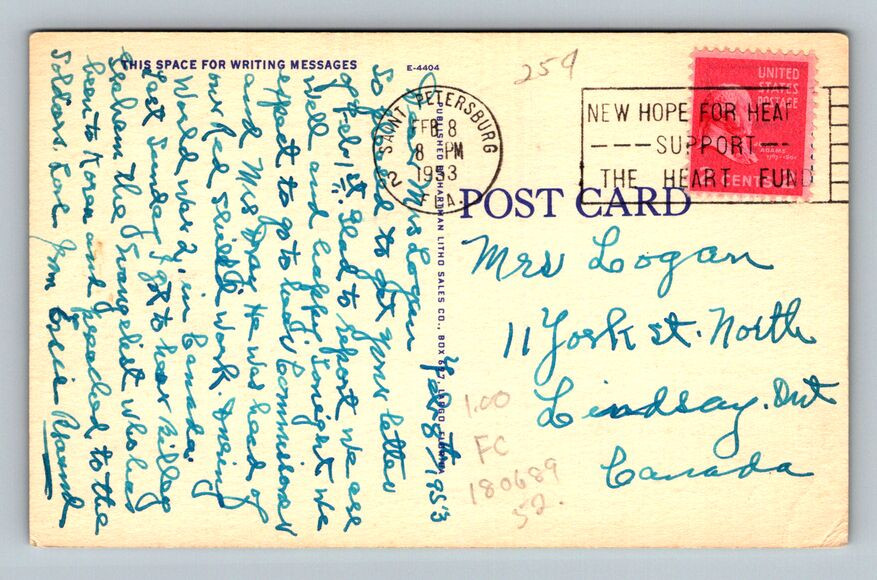 THIS SPACE FOR WRITING MESSAGES
E-4404
259
SAINT PETERSBURG
FEB 8
8 PM
1953
2
FLA.
NEW HOPE FOR HEA
SUPPORT
THE HEART FUND
UNITED
STATES
POSTAGE
ADAMS
CENTS
POST CARD
PUBLISHED BY HARTMAN LITHO SALES CO., BOX 697, LARGO, FLORIDA
Feb 8th/1953
Dear Mrs Logan
So pleased to get your letter
of Feb 1st. Glad to report we are
well and happy. Tonight we
expect to go to hear Commissioner
and Mrs Dray. He was head of
our Red Shield work. During
World War 2, in Canada.
Last Sunday I got to hear Billy
Graham the Evangelist who has
been to Korea and preached to the
Soldiers. Love from
Mrs Logan
11 York st. North
Lindsay. Ont
Canada
1.00
FC
180689
52.